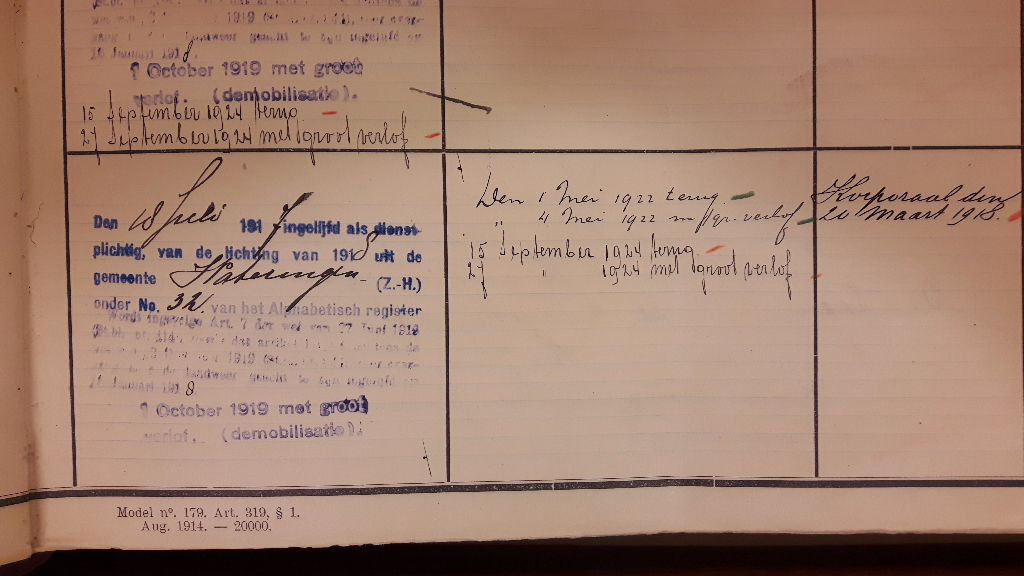 1919
Landweer geacht te zijn ingelijfd op
16 Januari 1918
1 October 1919 met groot
verlof. (demobilisatie).
15 September 1924 terug
27 September 1924 met groot verlof
Den 18 Juli 1917 ingelijfd als dienst-
plichtig, van de lichting van 1918 uit de
gemeente Wateringen (Z.-H.)
onder No. 32 van het Alphabetisch register
Wordt ingevolge Art. 7 der wet van 27 Juni 1919
dat artikel
1919
de Landweer geacht te zijn ingelijfd op
Januari 1918
1 October 1919 met groot
verlof. (demobilisatie).
Den 1 Mei 1922 terug
" 4 Mei 1922 m/gr. verlof
15 September 1924 terug
27 " 1924 met groot verlof
Korporaal den
20 Maart 1918.
Model n°. 179. Art. 319, § 1.
Aug. 1914. — 20000.